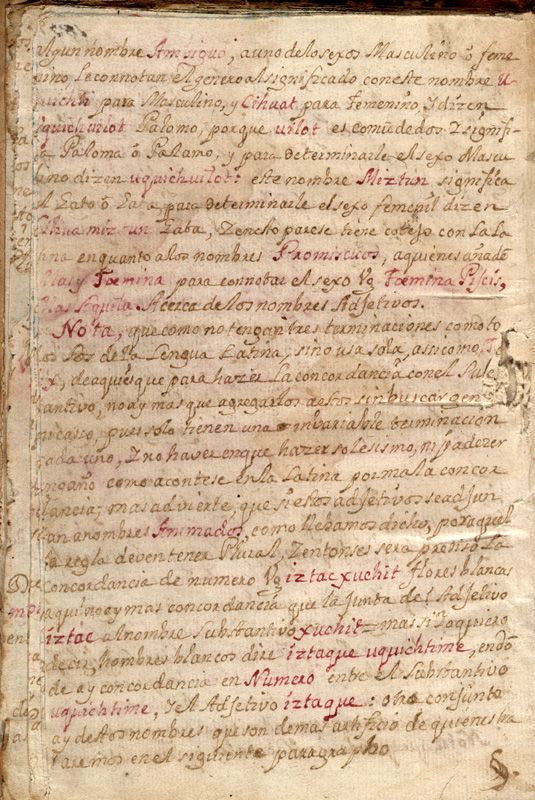 algun nombre Ambiguo, a uno de los exos Masculino ô feme
nino le connotan el genero al significado con este nombre u
quichti para Masculino, y Cihuat para femenino, y dizen
uquichuilot Palomo, porque uilot es comu de dos y signifi
ca Paloma ô Palomo, y para determinarle el sexo Mascu
lino dizen uquichuilot: este nombre Miztun significa
el Gato ô Gata para determinarle el sexo femenil dizen
Cihua miztun Gata, y en esto parese tiene cotejo con la La
tina en quanto a los nombres Promiscuos, a quienes añadē
Mas y Fœmina para connotar el sexo Vg. Fœmina Piscis,
Mas Aquila. Acerca de los nombres Adjetivos.
Nota, que como no tengan tres terminaciones como to
dos los de la Lengua Latina; sino una sola, assi como,
de aqui es que para hazer la concordancia con el Subs
tantivo, no ay mas que agregarlos a estos sin buscar gen
ni casso, pues solo tienen una invariable terminacion
cada uno, y no haver en que hazer solesismo, ni padezer
engaño como acontese en la Latina por mala concor
dancia; mas advierte, que si estos adjetivos se adjun
tan a nombres Animados, como llebamos dicho, por aquel
la regla deven tener Plural, y entonses sera preciso la
concordancia de numero Vg iztac xuchit flores blancas
aqui no ay mas concordancia que la junta del Adjetivo
iztac al nombre Substantivo xuchit = mas si lo quiero
decir, hombres blancos dire iztaque uquichtime, endō
de ay concordancia en Numero entre el Substantivo
uquichtime, y el Adjetivo iztaque: otro conjunto
ay destos nombres que son de mas artificio de quienes tra
taremos en el siguiente paragrapho